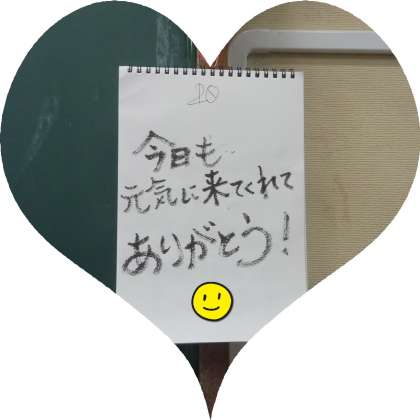 今日も
元気に来てくれて
ありがとう!